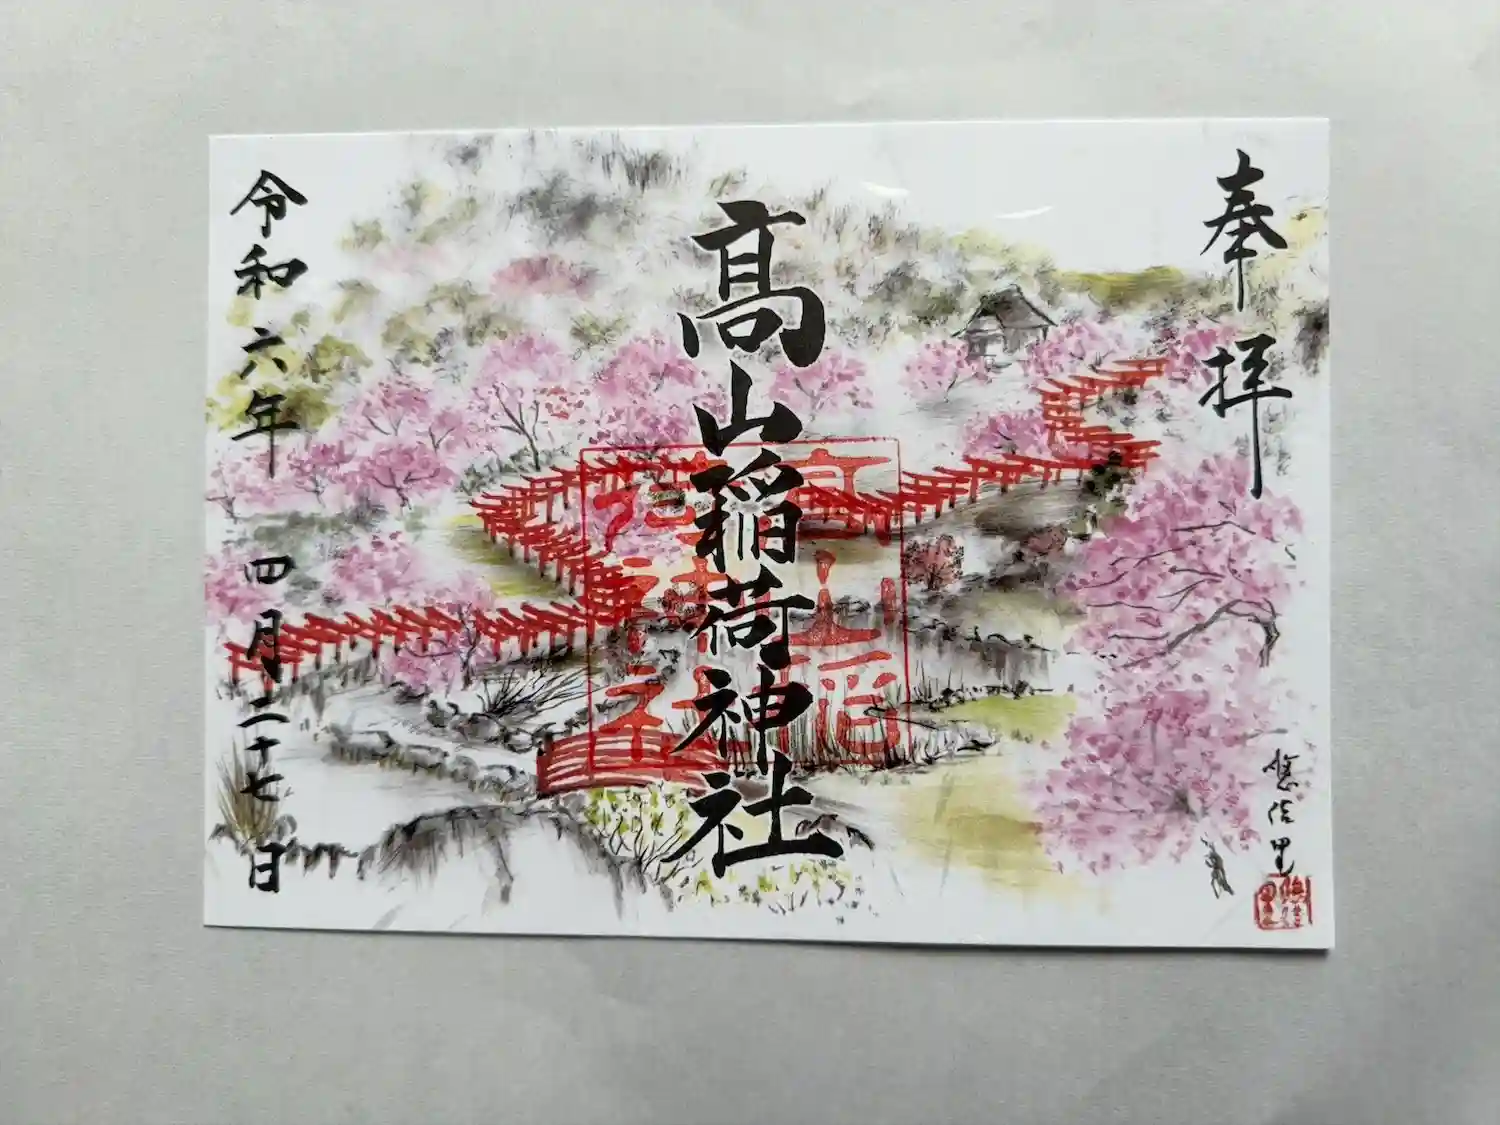 奉拝
髙山稲荷神社
令和六年 四月二十七日